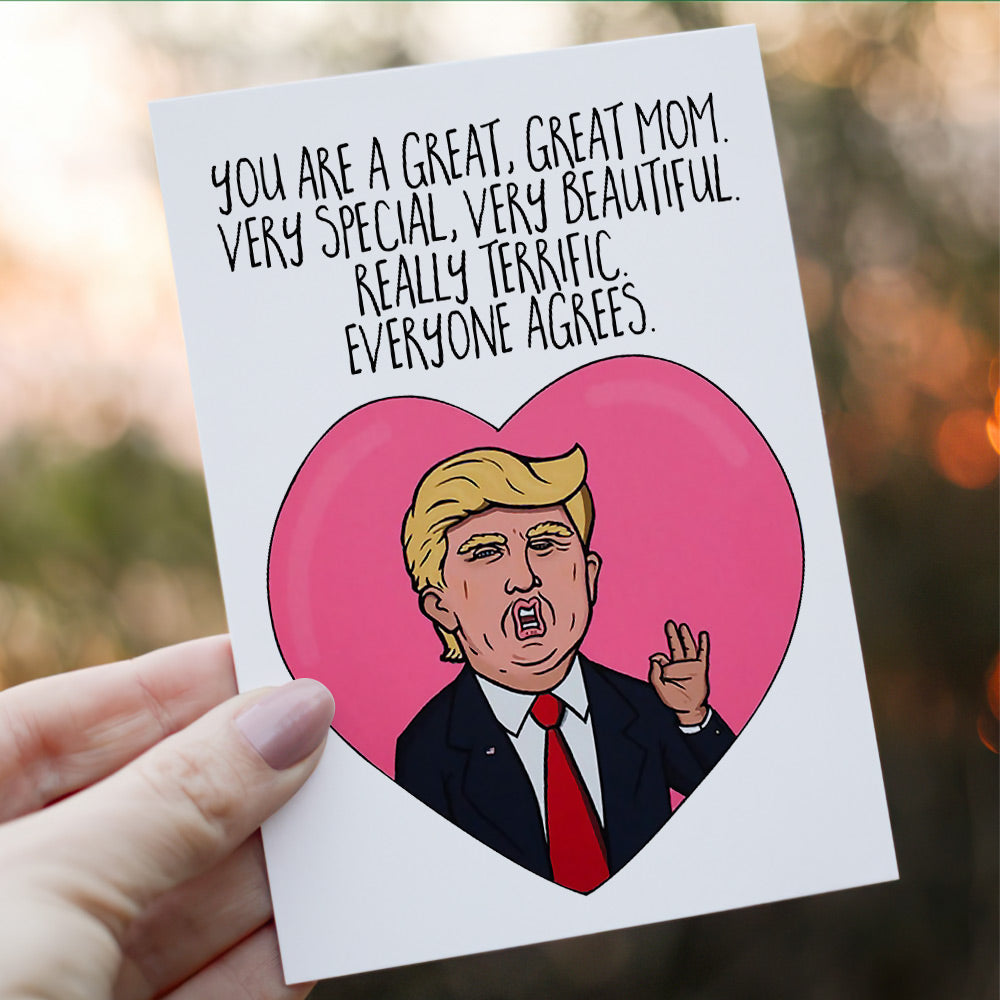 YOU ARE A GREAT, GREAT MOM.
VERY SPECIAL, VERY BEAUTIFUL.
REALLY TERRIFIC.
EVERYONE AGREES.